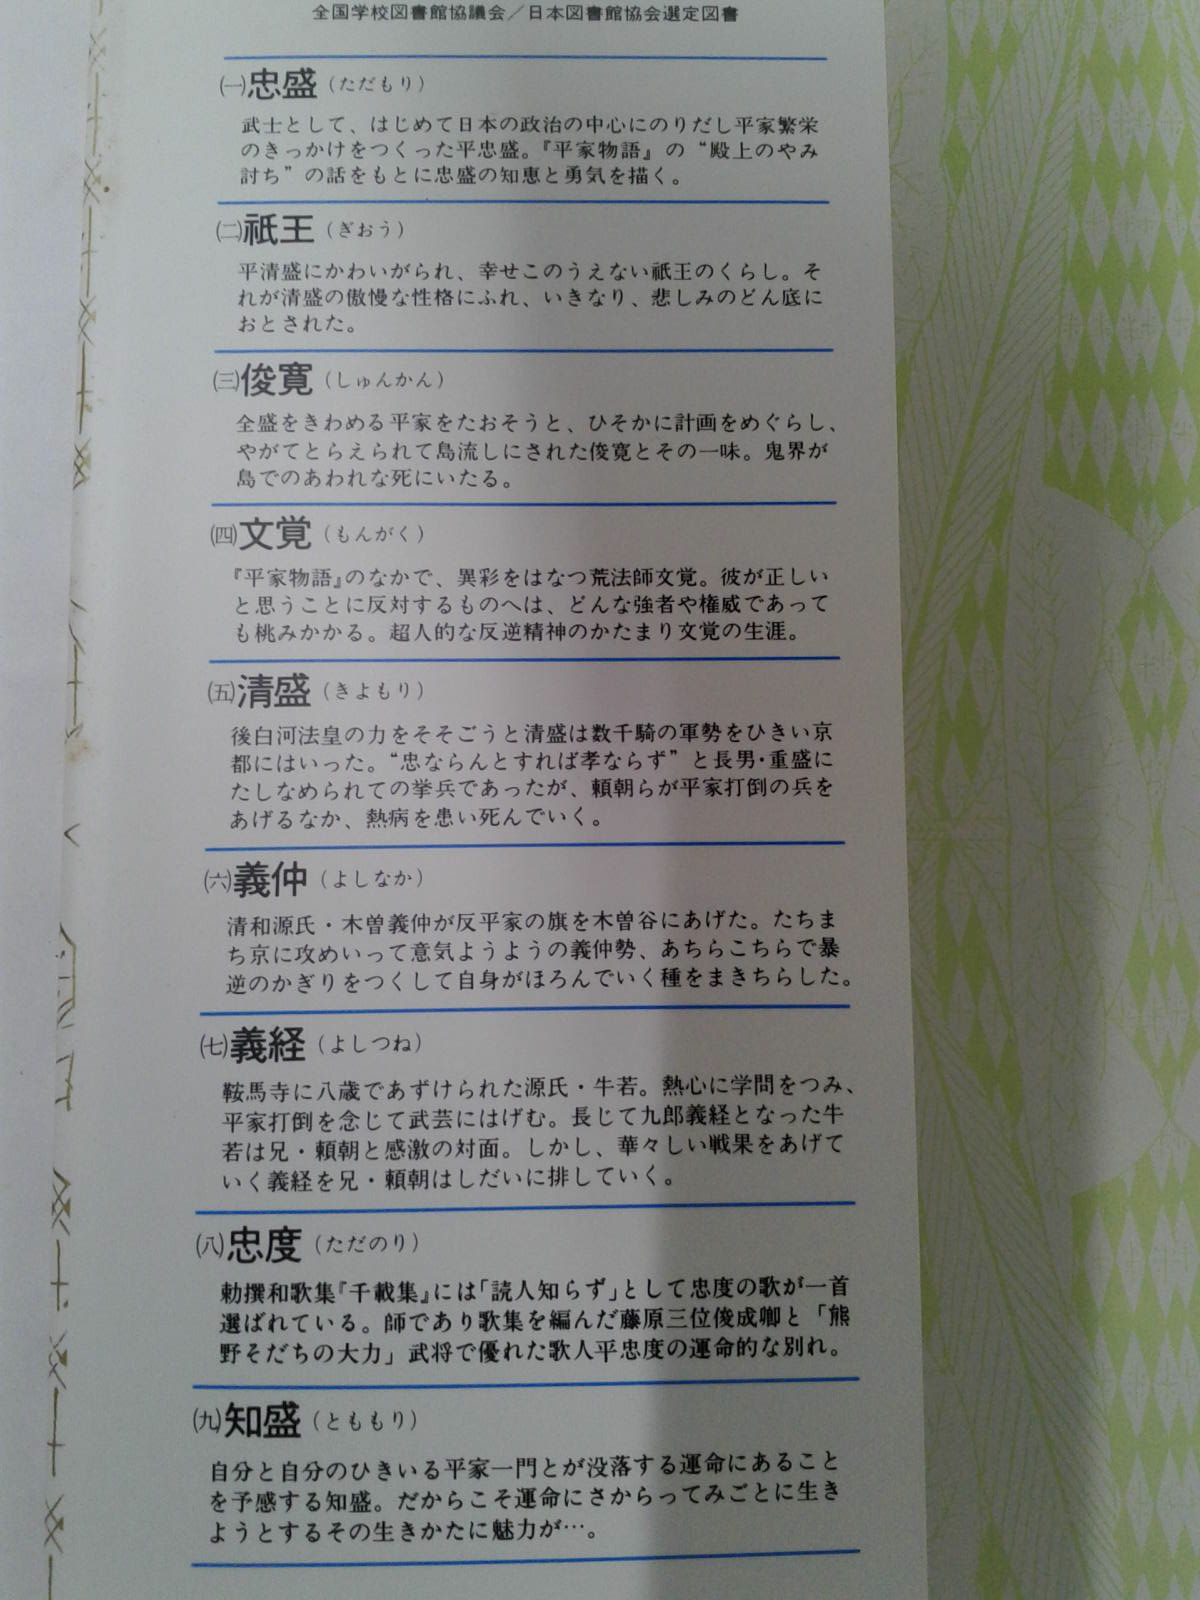 全国学校図書館協議会／日本図書館協会選定図書
㈠忠盛（ただもり）
武士として、はじめて日本の政治の中心にのりだし平家繁栄
のきっかけをつくった平忠盛。『平家物語』の“殿上のやみ
討ち”の話をもとに忠盛の知恵と勇気を描く。
㈡祇王（ぎおう）
平清盛にかわいがられ、幸せこのうえない祇王のくらし。そ
れが清盛の傲慢な性格にふれ、いきなり、悲しみのどん底に
おとされた。
㈢俊寛（しゅんかん）
全盛をきわめる平家をたおそうと、ひそかに計画をめぐらし、
やがてとらえられて島流しにされた俊寛とその一味。鬼界が
島でのあわれな死にいたる。
㈣文覚（もんがく）
『平家物語』のなかで、異彩をはなつ荒法師文覚。彼が正しい
と思うことに反対するものへは、どんな強者や権威であって
も桃みかかる。超人的な反逆精神のかたまり文覚の生涯。
㈤清盛（きよもり）
後白河法皇の力をそそごうと清盛は数千騎の軍勢をひきい京
都にはいった。“忠ならんとすれば孝ならず”と長男・重盛に
たしなめられての挙兵であったが、頼朝らが平家打倒の兵を
あげるなか、熱病を患い死んでいく。
㈥義仲（よしなか）
清和源氏・木曽義仲が反平家の旗を木曽谷にあげた。たちま
ち京に攻めいって意気ようようの義仲勢、あちらこちらで暴
逆のかぎりをつくして自身がほろんでいく種をまきちらした。
㈦義経（よしつね）
鞍馬寺に八歳であずけられた源氏・牛若。熱心に学問をつみ、
平家打倒を念じて武芸にはげむ。長じて九郎義経となった牛
若は兄・頼朝と感激の対面。しかし、華々しい戦果をあげて
いく義経を兄・頼朝はしだいに排していく。
㈧忠度（ただのり）
勅撰和歌集『千載集』には「読人知らず」として忠度の歌が一首
選ばれている。師であり歌集を編んだ藤原三位俊成卿と「熊
野そだちの大力」武将で優れた歌人平忠度の運命的な別れ。
㈨知盛（とももり）
自分と自分のひきいる平家一門とが没落する運命にあること
を予感する知盛。だからこそ運命にさからってみごとに生き
ようとするその生きかたに魅力が…。